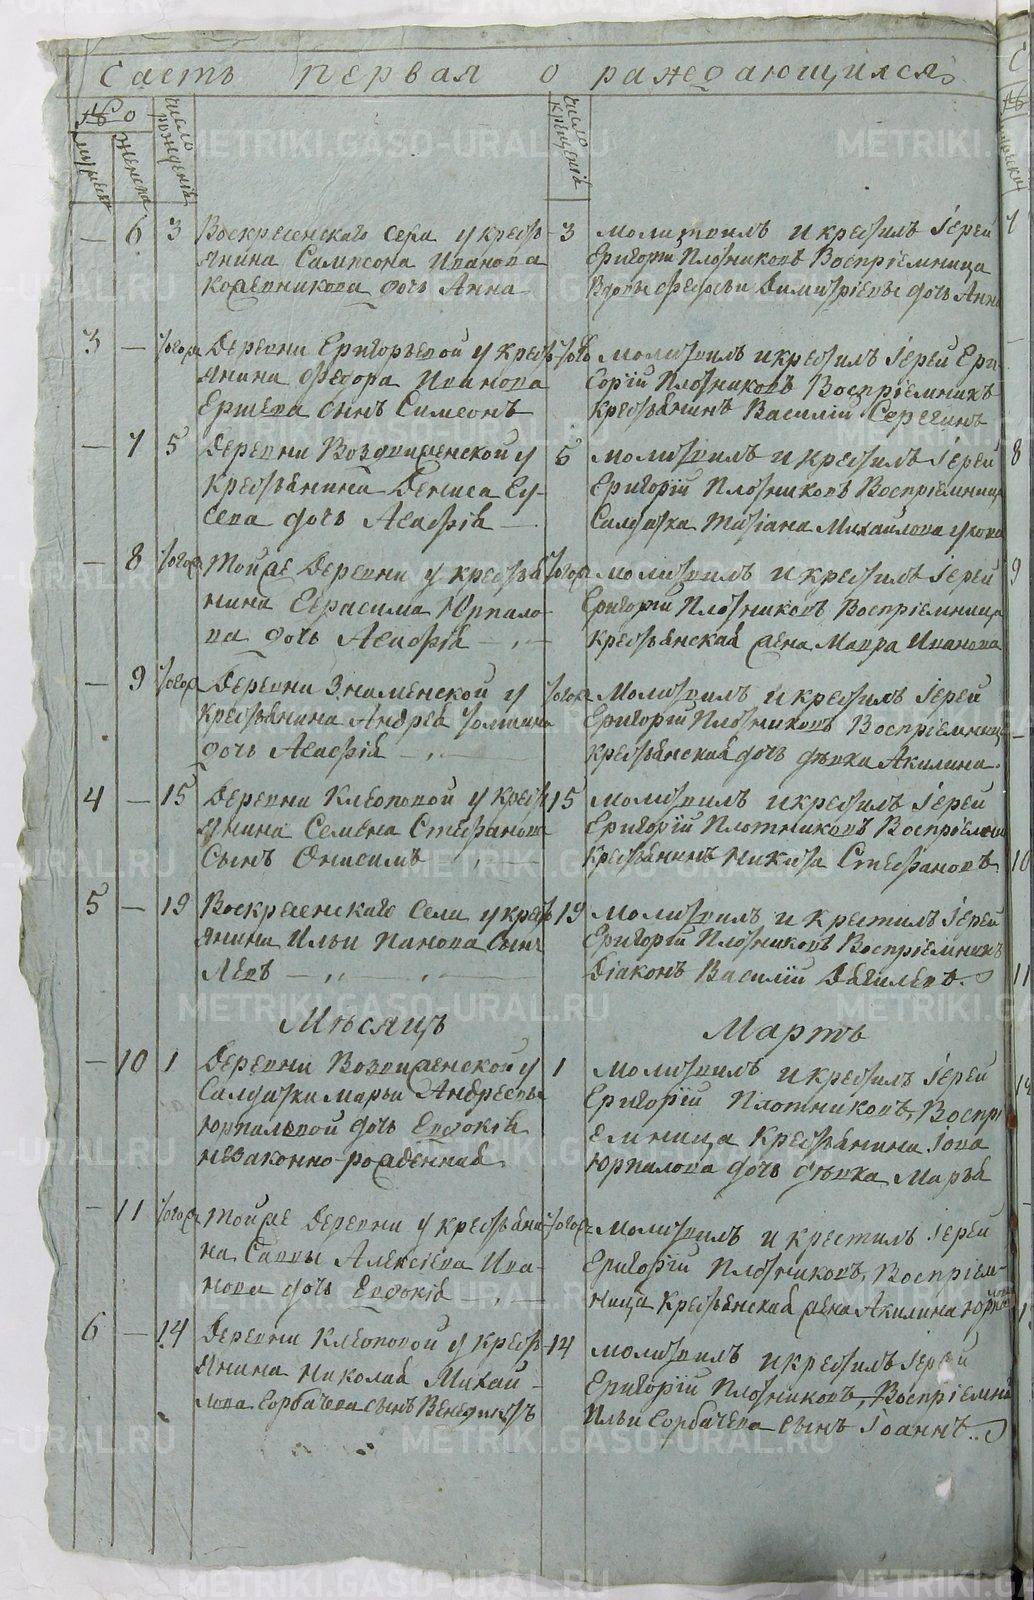 Часть первая о раждающихся
№ о
мужеска
женска
число рождения
число крещения
6 3 Воскресенскаго села у кресть
янина Сампсона Иванова
Кожевникова дочь Анна
3 молитвилъ и крестилъ Іерей
Григорій Плотниковъ Воспріемница
Вдовы Федосьи Димитріевы дочь Анна
3 — тогож Деревни Григорьевой у кресть
янина Федора Иванова
Ершева сынъ Симеонъ
тогож молитвилъ и крестилъ Іерей Гри
горій Плотниковъ Воспріемникъ
крестьянинъ Василій Серегинъ
— 7 5 Деревни Воздвиженской у
крестьянина Дениса Гу-
сева дочь Агафія —
5 молитвилъ и крестилъ Іерей
Григорій Плотниковъ Воспріемница
Салдатка Татіана Михайлова
— 8 тогож Тойже Деревни у крестья
нина Герасима Юрпало-
ва дочь Агафія —
тогож молитвилъ и крестилъ Іерей
Григорій Плотниковъ Воспріемница
крестьянская жена Мавра Иванова
— 9 тогож Деревни Знаменской у
крестьянина Андрея Томина
дочь Агафія —
тогож Молитвилъ и крестилъ Іерей
Григорій Плотниковъ Воспріемница
крестьянская дочь дѣвка Акилина.
4 — 15 Деревни Клеоповой у кресть
янина Семена Стефанова
Сынъ Онисимъ —
15 молитвилъ и крестилъ Іерей
Григорій Плотниковъ Воспріемни
крестьянинъ Никита Стефановъ
5 — 19 Воскресенскаго Села у кресть
янина Ильи Панова Сынъ
Левъ —
19 молитвилъ и крестилъ Іерей
Григорій Плотниковъ Воспріемникъ
Діаконъ Василій
Мѣсяцъ Мартъ
— 10 1 Деревни Воздвиженской у
Салдатки Марьи Андреевы
Юрпаловой дочь Евдокія
незаконно-рожденная
1 молитвилъ и крестилъ Іерей
Григорій Плотниковъ, Воспрі
емница крестьянина Іова
Юрпалова дочь дѣвка Марья
— 11 тогож Тойже Деревни у крестьяни
на Саввы Алексіева Ива-
нова дочь Евдокія
тогож молитвилъ и крестилъ Іерей
Григорій Плотниковъ, Воспріем-
ница крестьянская жена Акилина Юрпалова
6 — 14 Деревни Клеоповой у кресть
янина Николая Михай-
лова Горбачева сынъ Венедиктъ
14 молитвилъ и крестилъ Іерей
Григорій Плотниковъ, Воспріемни
Ильи Горбачева сынъ Іоаннъ.
METRIKI.GASO-URAL.RU